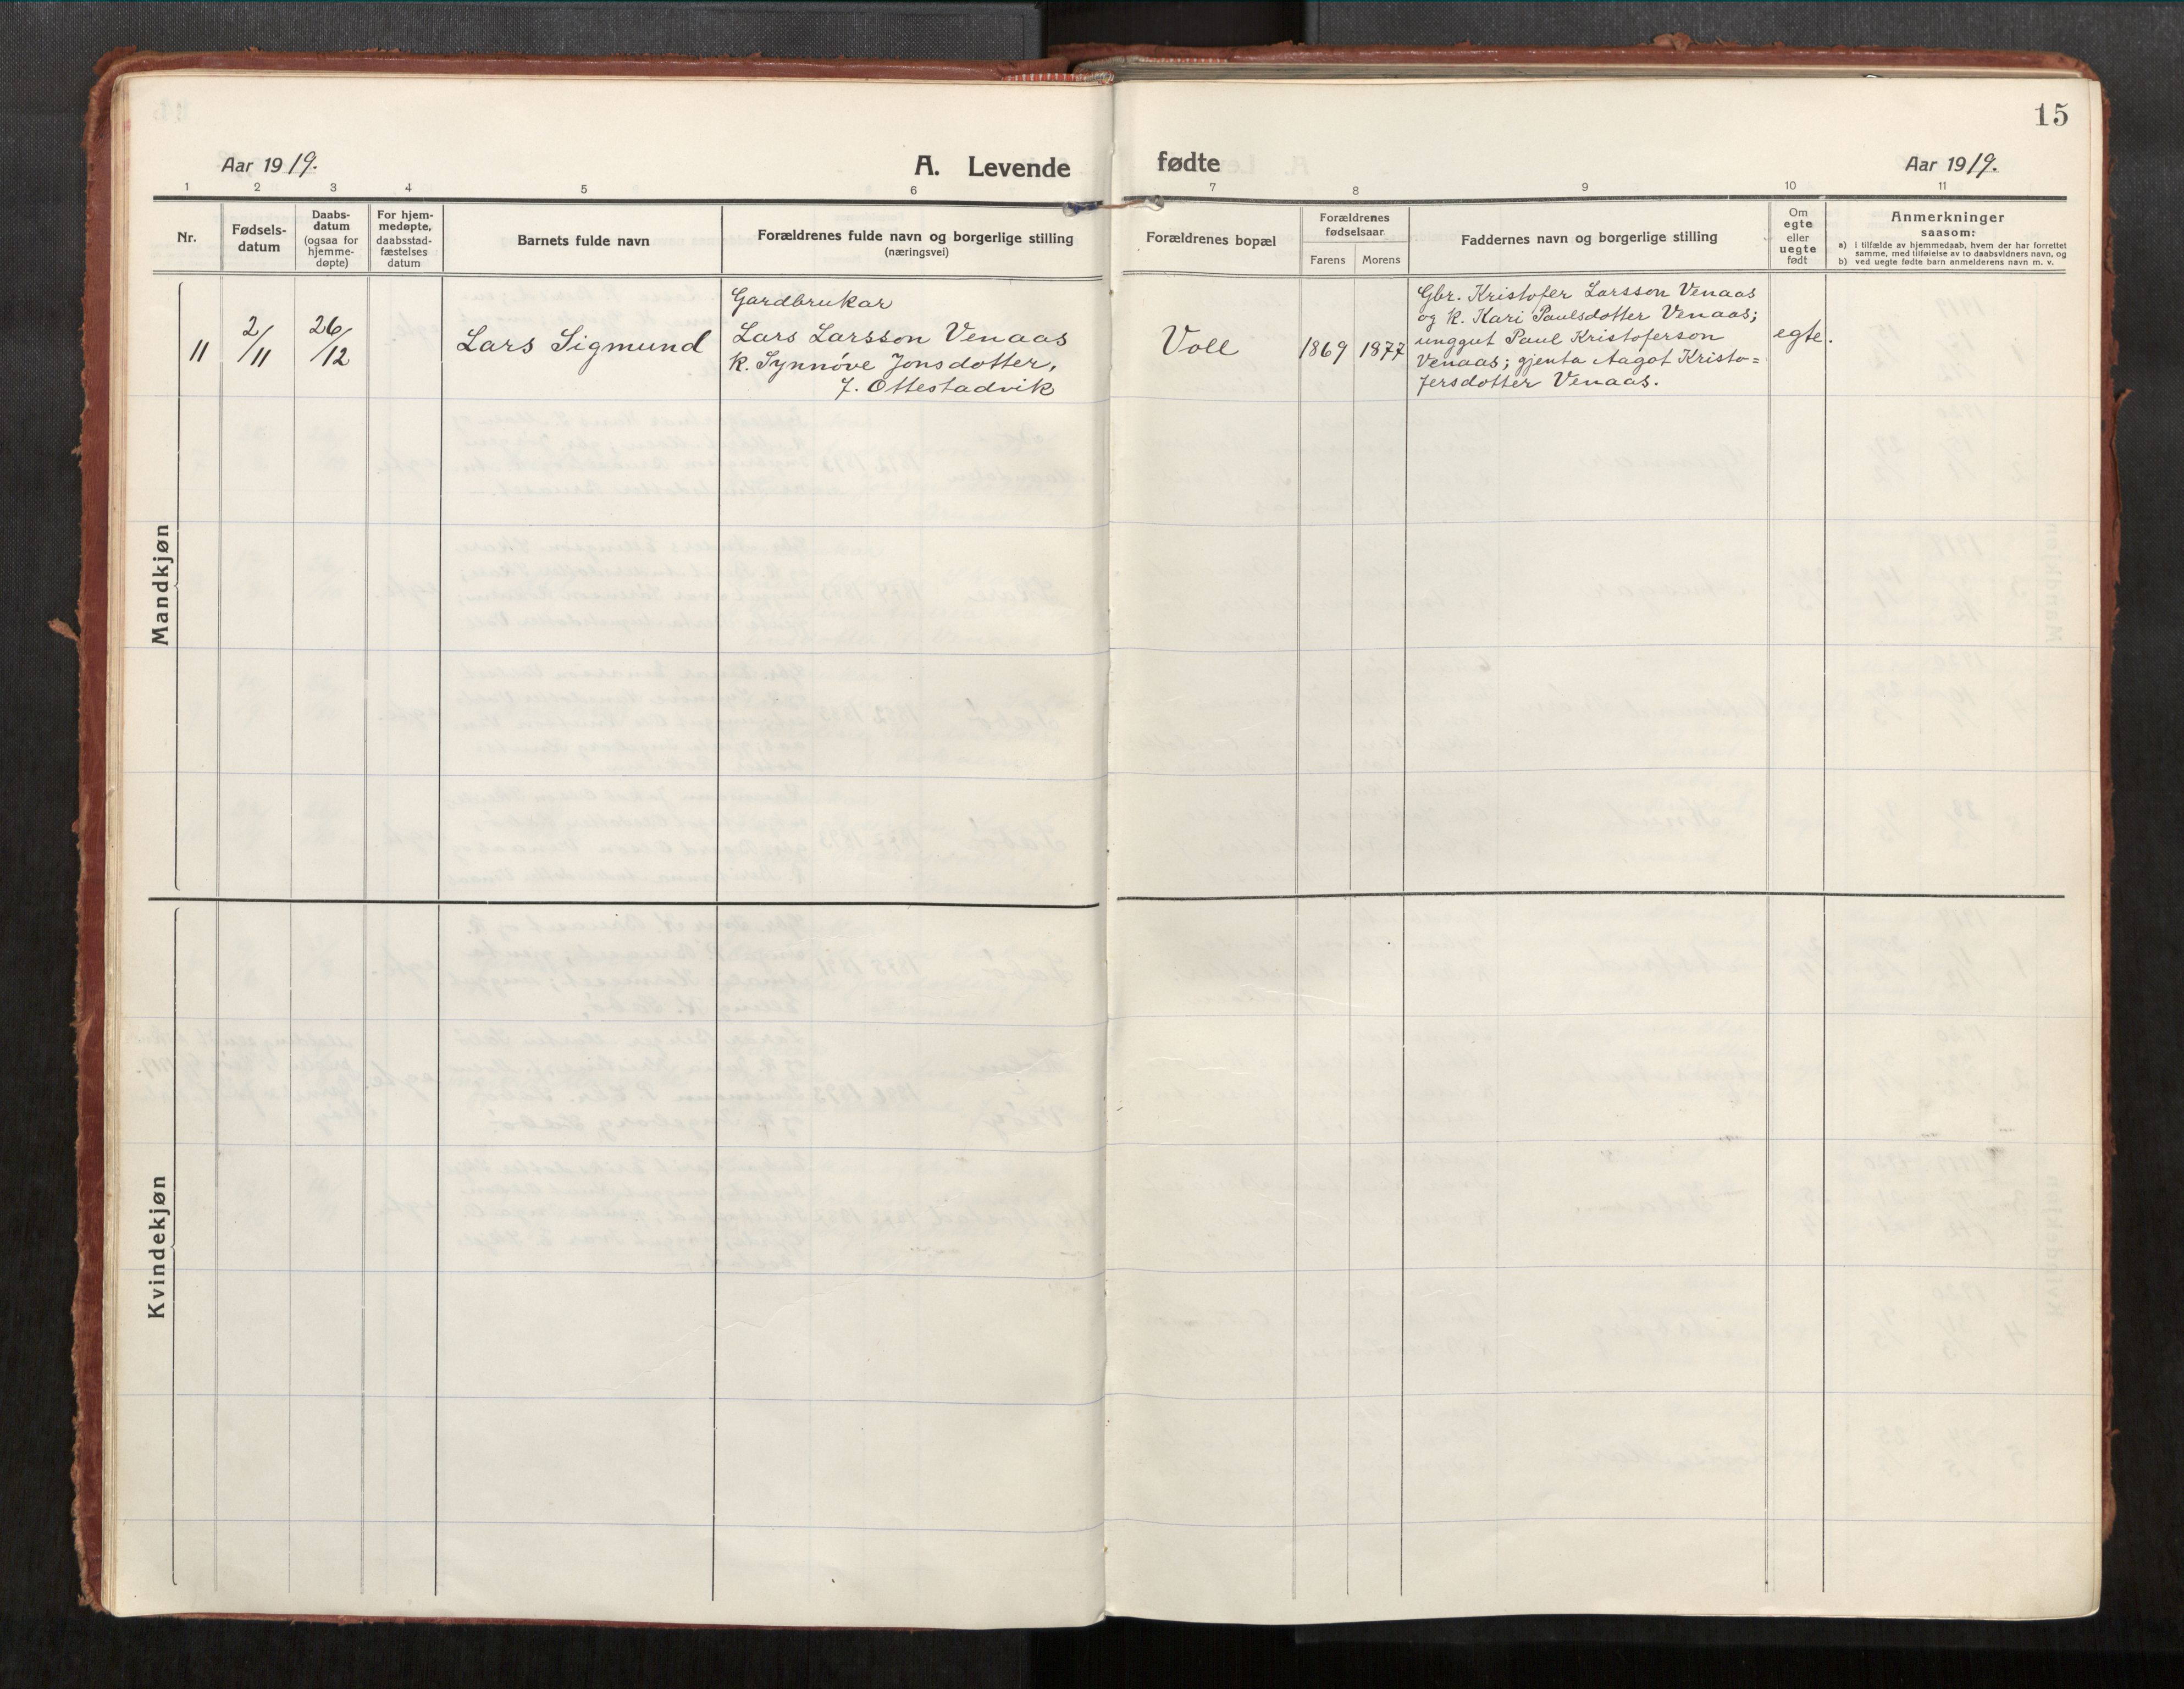 15
Aar 1919.
A. Levende fødte
Aar 1919.
1 2 3 4 5 6 7 8 9 10 11
Nr.
Fødsels-
datum
Daabs-
datum
(ogsaa for
hjemme-
døpte)
For hjem-
medøpte,
daabsstad-
fæstelses
datum
Barnets fulde navn
Forældrenes fulde navn og borgerlige stilling
(næringsvei)
Forældrenes bopæl
Forældrenes
fødselsaar
Farens Morens
Faddernes navn og borgerlige stilling
Om
egte
eller
uegte
født
Anmerkninger
saasom:
a) i tilfælde av hjemmedaab, hvem der har forrettet
samme, med tilføielse av to daabsvidners navn, og
b) ved uegte fødte barn anmelderens navn m. v.
Mandkjøn
11
2/11
26/12
Lars Sigmund
Gardbrukar
Lars Larsson Venaas
k. Synnöve Jonsdotter,
f. Ottestadvik
Voll
1869 1877
Gbr. Kristofer Larsson Venaas
og k. Kari Paulsdotter Venaas;
unggut Paul Kristoferson
Venaas; gjenta Aagot Kristo=
fersdotter Venaas.
egte.
Kvindekjøn